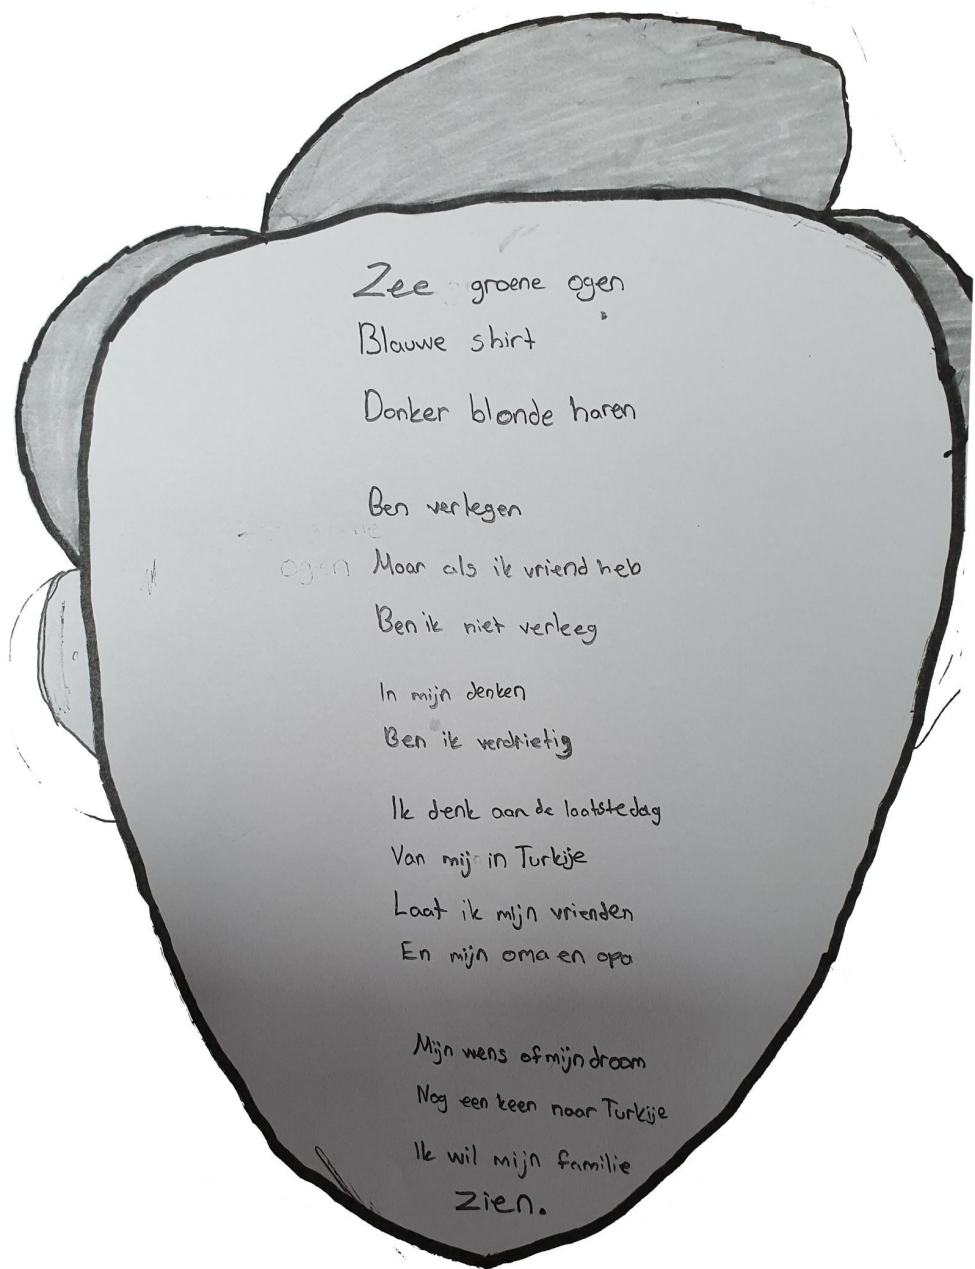 Zee groene ogen
Blauwe shirt
Donker blonde haren
Ben verlegen
Maar als ik vriend heb
Ben ik niet verleeg
ogen
In mijn denken
Ben ik verdrietig
Ik denk aan de laatste dag
Van mij in Turkije
Laat ik mijn vrienden
En mijn oma en opa
Mijn wens of mijn droom
Nog een keen naar Turkije
Ik wil mijn familie
zien.